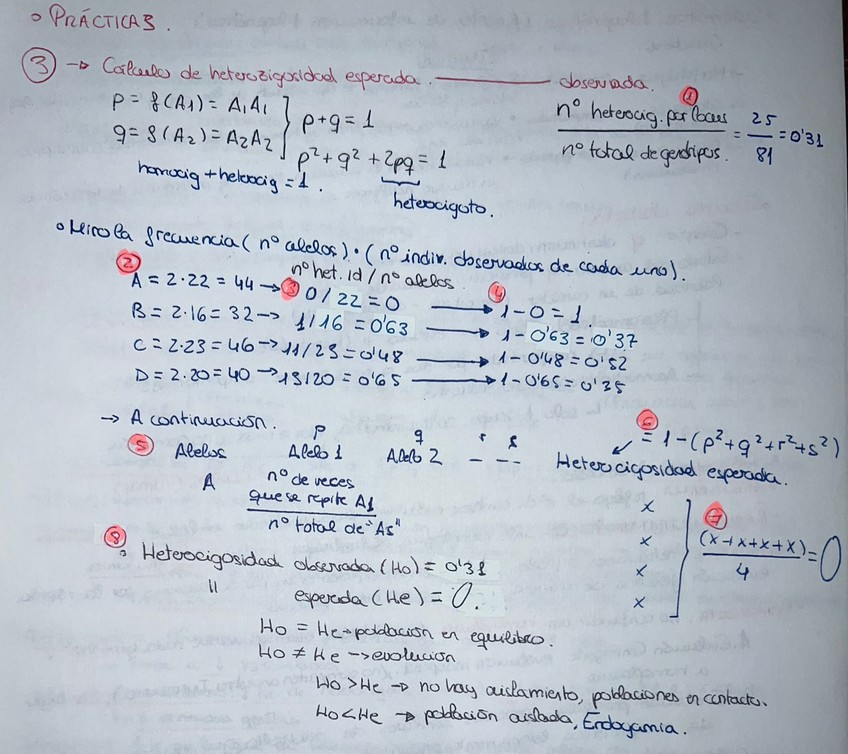 o PRÁCTICA 3.
③ → Cálculo de heterozigosidad esperada. ——— observada.
p = f(A1) = A1A1
q = f(A2) = A2A2
p + q = 1
p² + q² + 2pq = 1
homocig + heterocig = 1.
heterocigoto.
①
nº heterocig. por locus / nº total de genotipos. = 25/81 = 0'31
• Miro la frecuencia (nº alelos) · (nº indiv. observados de cada uno).
② nº het. id / nº alelos
A = 2·22 = 44 → ③ 0/22 = 0 → ④ 1-0 = 1.
B = 2·16 = 32 → 1/16 = 0'63 → 1-0'63 = 0'37
C = 2·23 = 46 → 11/23 = 0'48 → 1-0'48 = 0'52
D = 2·20 = 40 → 13/20 = 0'65 → 1-0'65 = 0'35
→ A continuación.
p q r s
⑤ Alelos Alelo 1 Alelo 2 - - -
A nº de veces que se repite A1 / nº total de "As"
⑥ = 1-(p²+q²+r²+s²)
Heterocigosidad esperada.
x
x
x
x
⑦ (x+x+x+x)/4 = 0
⑧
o Heterocigosidad observada (Ho) = 0'31
" esperada (He) = 0.
Ho = He → población en equilibrio.
Ho ≠ He → evolución
Ho > He → no hay aislamiento, poblaciones en contacto.
Ho < He → población aislada, Endogamia.